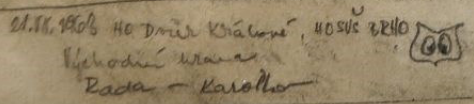 HO Dvůr Králové, HOSUŠ BRNO
Východní hrana
Rada - Karolko